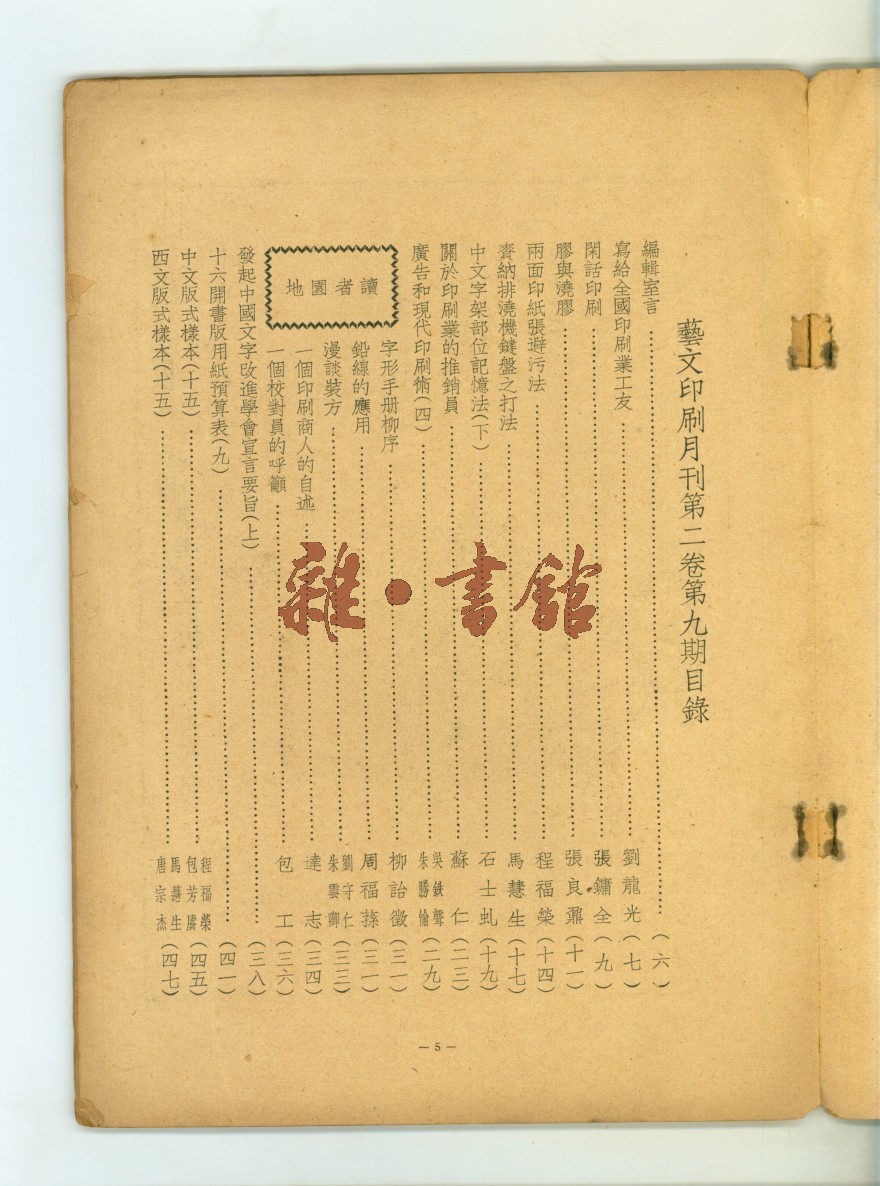 藝文印刷月刊第二卷第九期目錄
編輯室言……(六)
寫給全國印刷業工友……劉龍光(七)
閑話印刷……張鏞全(九)
膠與澆膠……張良鼐(十一)
兩面印紙張避污法……程福榮(十四)
賚納排澆機鍵盤之打法……馬慧生(十七)
中文字架部位記憶法(下)……石士虬(十九)
關於印刷業的推銷員……蘇仁(二三)
廣告和現代印刷術(四)……吳鉄聲 朱勝愉(二九)
讀者園地
字形手册柳序……柳詒徵(三一)
鉛線的應用……周福蓀(三一)
漫談裝方……劉守仁 朱雲卿(三三)
一個印刷商人的自述……達志(三四)
一個校對員的呼籲……包工(三六)
發起中國文字改進學會宣言要旨(上)……(三八)
十六開書版用紙預算表(九)……(四一)
中文版式樣本(十五)……程福榮 包芳(四五)
西文版式樣本(十五)……馬慧生 唐宗杰(四七)
— 5 —
雜·書館